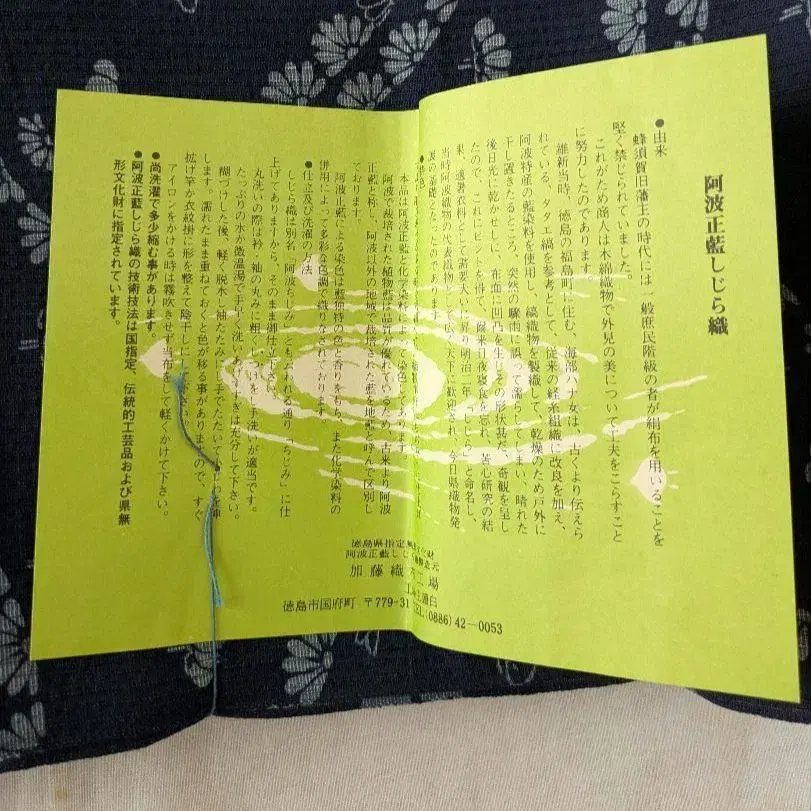 阿波正藍しじら織
●由来
蜂須賀旧藩主の時代には一般庶民階級の者が絹布を用いることを
堅く禁じられていました。
これがため商人は木綿織物で外見の美について工夫をこらすこと
に努力したのであります。
維新当時、徳島の福島町に住む、海部ハナ女は、古くより伝えら
れている、タタエ縞を参考として、従来の経糸組織に改良を加え、
阿波特産の藍染料を使用し、縞織物を製織して、乾燥のため戸外に
干し置きたるところ、突然の驟雨に誤って濡らしてしまい、晴れた
後日光に乾かせしに、布面に凹凸を生じその形状甚だ、奇観を呈し
たので、これにヒントを得て、爾来日夜寝食を忘れ、苦心研究の結
果、適暑衣料として需要大いに昇り明治二年「しじら」と命名し、
当時阿波織物の代表織物として広く天下に歓迎され、今日県織物発
展の基礎となったのであります。
●特色
本品は阿波正藍と化学染料によって染色してあります
阿波で栽培された植物藍は品質が優れているため、古来より阿波
正藍と称し、阿波以外の地域で栽培された藍を地配と呼んで区別し
ております。
阿波正藍による染色は藍独特の色と香りをもち、また化学染料の
併用によって多彩な色調で織りなされております。
●仕立及び洗濯の方法
しじら織は別名、阿波ちぢみ
ともいわれる通り「ちじみ」に仕
上げてありますから、そのまま御仕立下さい。
丸洗いの際は衿、袖の丸みに粗く
手洗いが適当です。
たっぷりの水か微温湯で手早く洗いあげすすぎは充分して下さい。
糊づけした後、軽く脱水し袖たたみにし手でたたいて
します。濡れたまま重ねておくと色が移る事がありますので、すぐ
拡げ竿か衣紋掛に形を整えて陰干しに
下さい。
アイロンをかける時は霧吹きせず当布をして軽くかけて下さい。
●尚洗濯で多少縮む事があります。
●阿波正藍しじら織の技術技法は国指定、伝統的工芸品および県無
形文化財に指定されています。
徳島県指定無形文化財
阿波正藍しじら織製造元
加藤織布工場
徳島市国府町 〒779-31 TEL(0886)42-0053